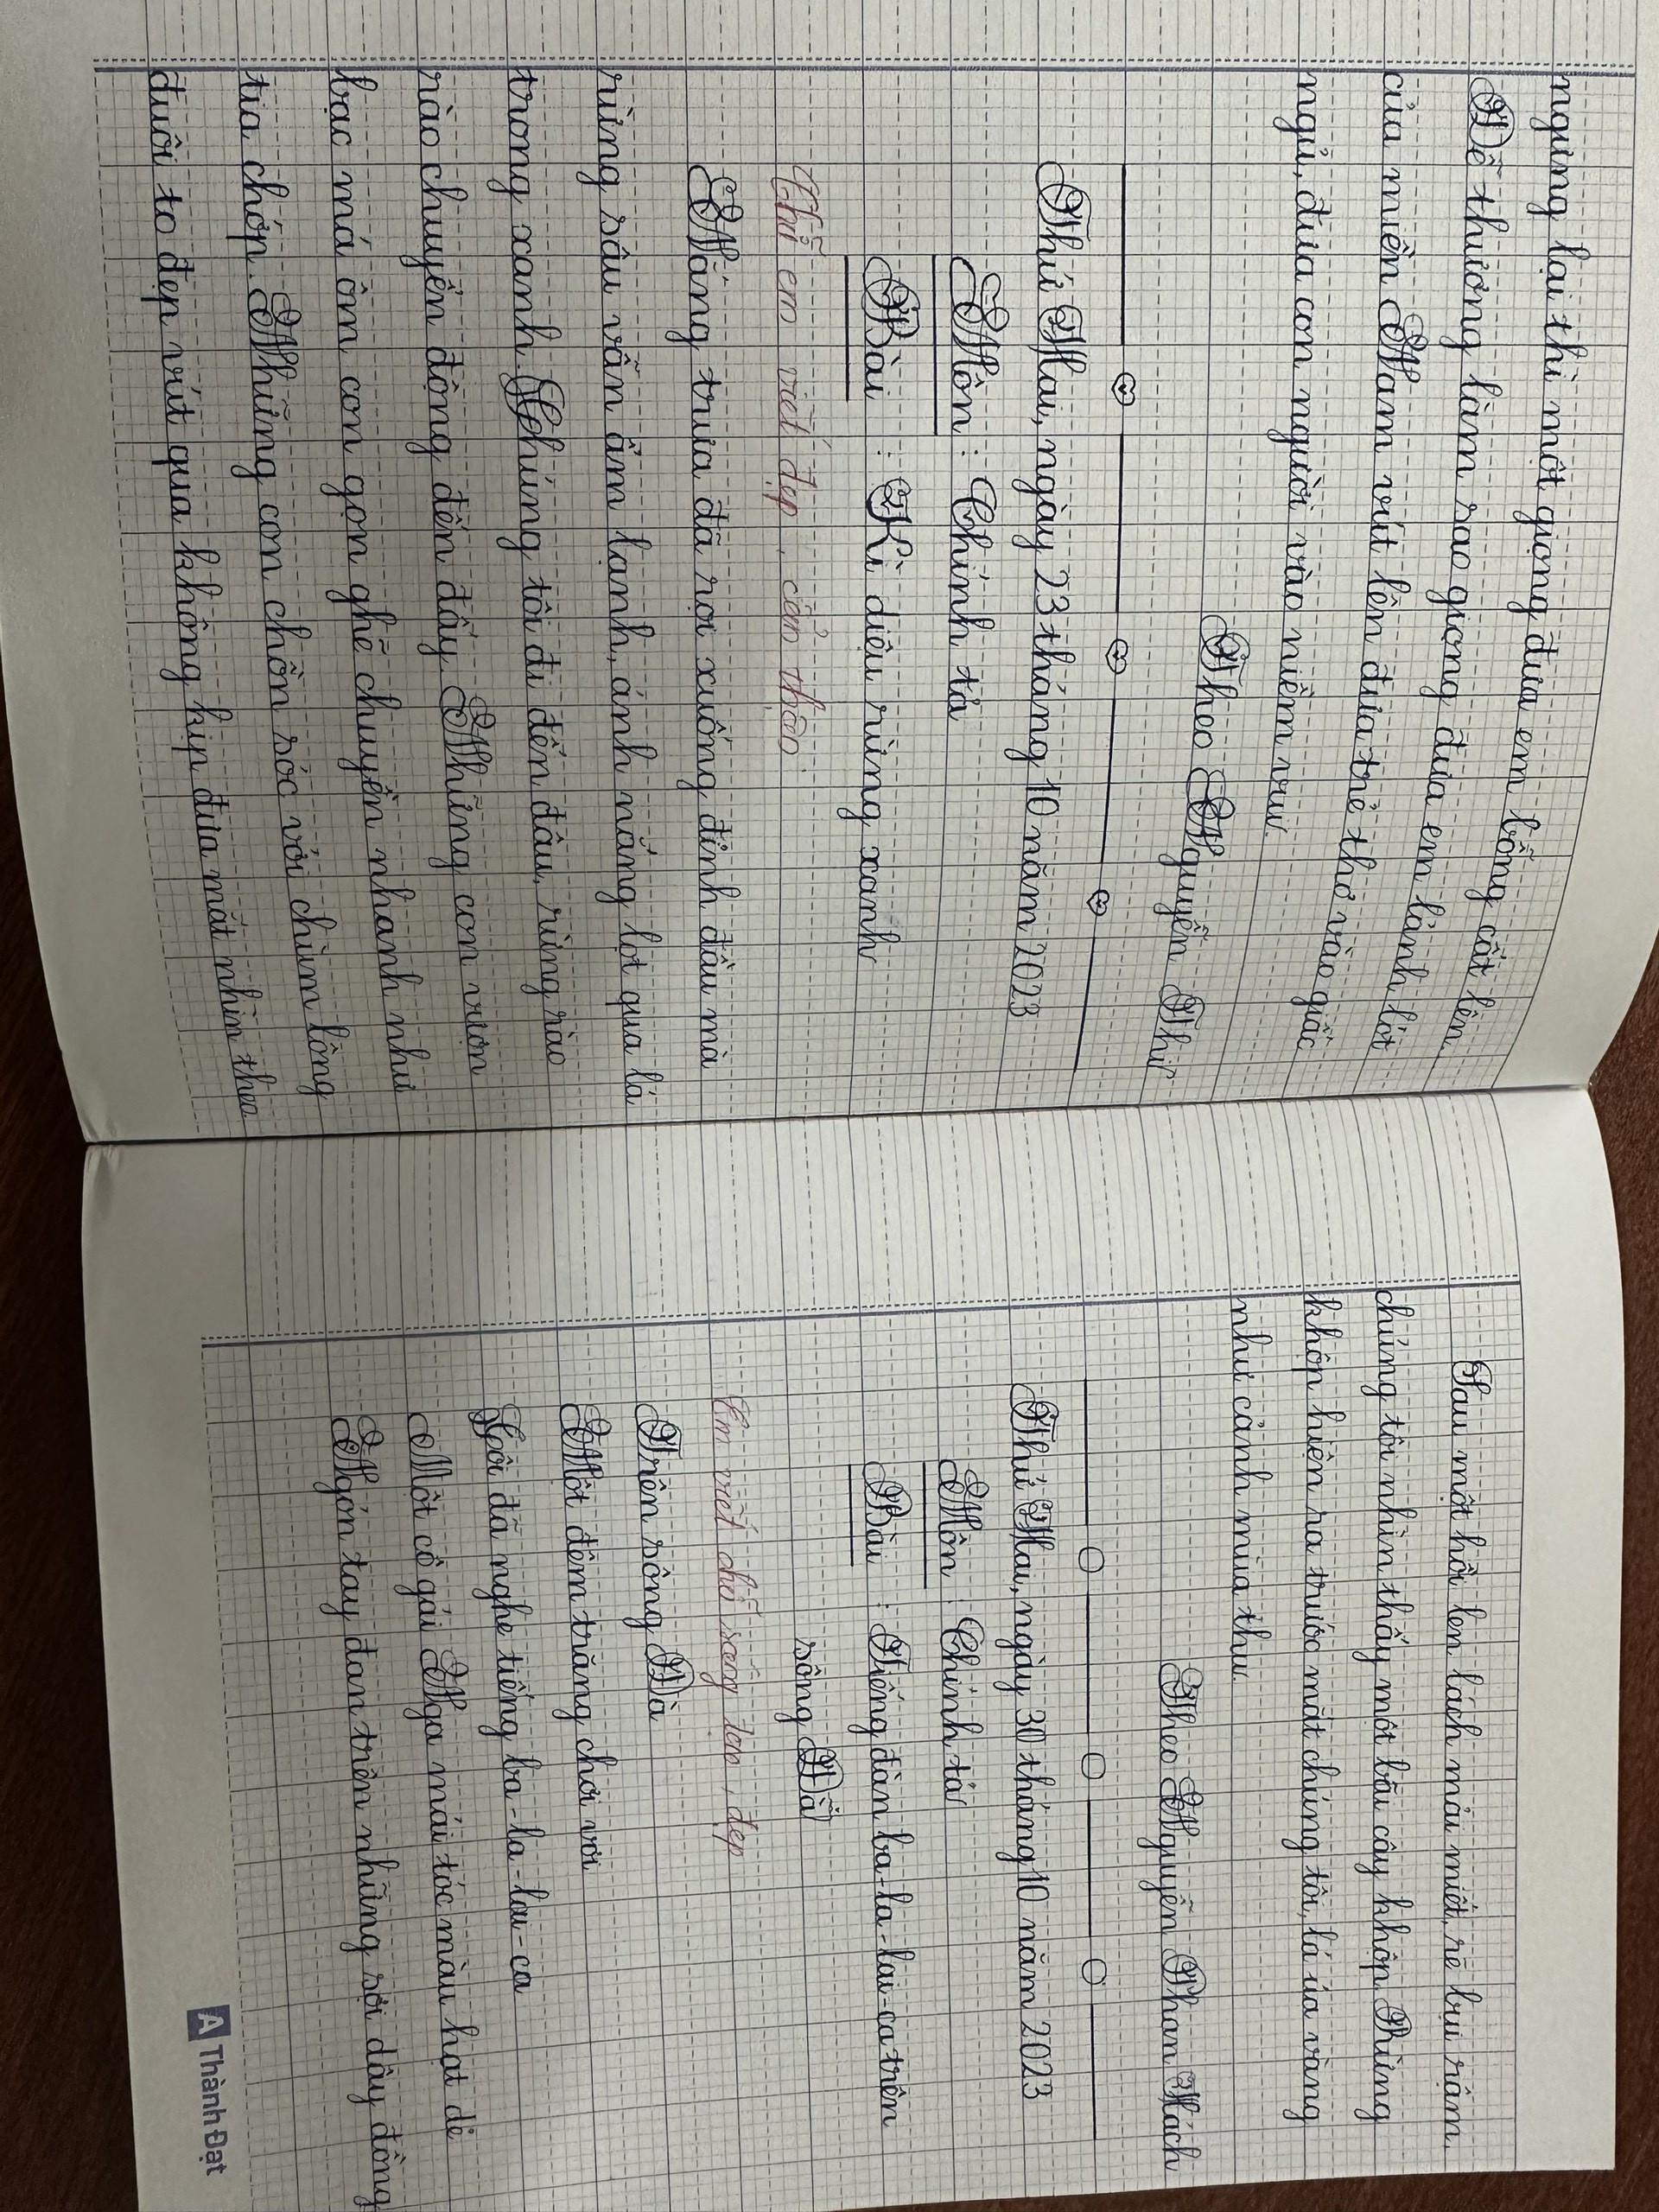 ngừng lại thì một giọng đưa em bỗng cất lên.
Dễ thương làm sao giọng đưa em lảnh lót
của miền Nam vút lên đưa trẻ thơ vào giấc
ngủ, đưa con người vào niềm vui.
Theo Nguyễn Thi
Thứ Hai, ngày 23 tháng 10 năm 2023
Môn : Chính tả
Bài : Kì diệu rừng xanh
Chữ em viết đẹp, cẩn thận.
Nắng trưa đã rọi xuống đỉnh đầu mà
rừng sâu vẫn ẩm lạnh, ánh nắng lọt qua lá
trong xanh. Chúng tôi đi đến đâu, rừng rào
rào chuyển động đến đấy. Những con vượn
bạc má ôm con gọn ghẽ chuyền nhanh như
tia chớp. Những con chồn sóc với chùm lông
đuôi to đẹp vút qua không kịp đưa mắt nhìn theo.
Sau một hồi len lách mải miết, rẽ bụi rậm,
chúng tôi nhìn thấy một bãi cây khộp. Rừng
khộp hiện ra trước mắt chúng tôi, lá úa vàng
như cảnh mùa thu.
Theo Nguyễn Phan Hách
Thứ Hai, ngày 30 tháng 10 năm 2023
Môn : Chính tả
Bài : Tiếng đàn ba-la-lai-ca trên
sông Đà
Em viết chữ sạch đẹp
Trên sông Đà
Một đêm trăng chơi vơi
Tôi đã nghe tiếng ba-la-lai-ca
Một cô gái Nga mái tóc màu hạt dẻ
Ngón tay đan trên những sợi dây đồng
A Thành Đạt